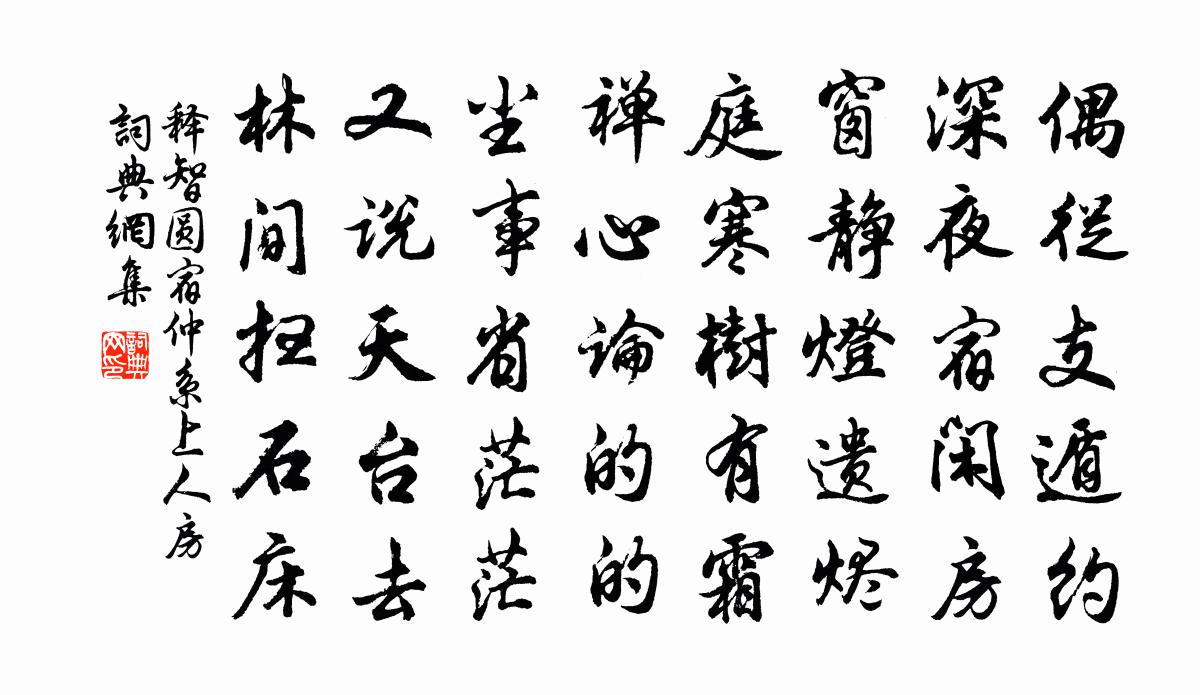 偶從支遁约
深夜宿闲房
窗静燈遗烬
庭寒樹有霜
禅心論的的
尘事省茫茫
又说天台去
林间扫石床
释智圆宿仲系上人房
詞典網集
詞典
网印